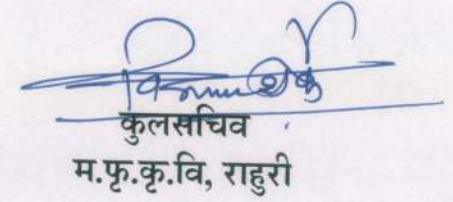 कुलसचिव
म.फु.कृ.वि, राहुरी